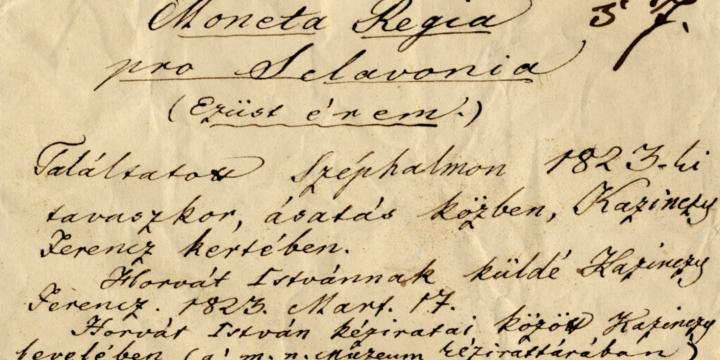 Moneta Regia
pro Sclavonia
(Ezüst érem.)
Találtatott Széphalmon 1823-ki
tavaszkor, ásatás közben, Kazinczy
Ferencz kertében.
Horvát Istvánnak küldé Kazinczy
Ferencz. 1823. Mart. 17.
Horvát István kéziratai között Kazinczy
levelében (a' m. n. múzeum kézirattárában)